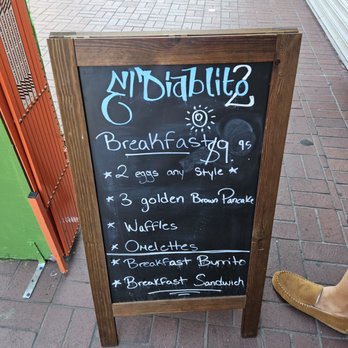 El Diablito 2
Breakfast $9.95
* 2 eggs any style *
* 3 golden Brown Pancake
* Waffles
* Omelettes
* Breakfast Burrito
* Breakfast Sandwich